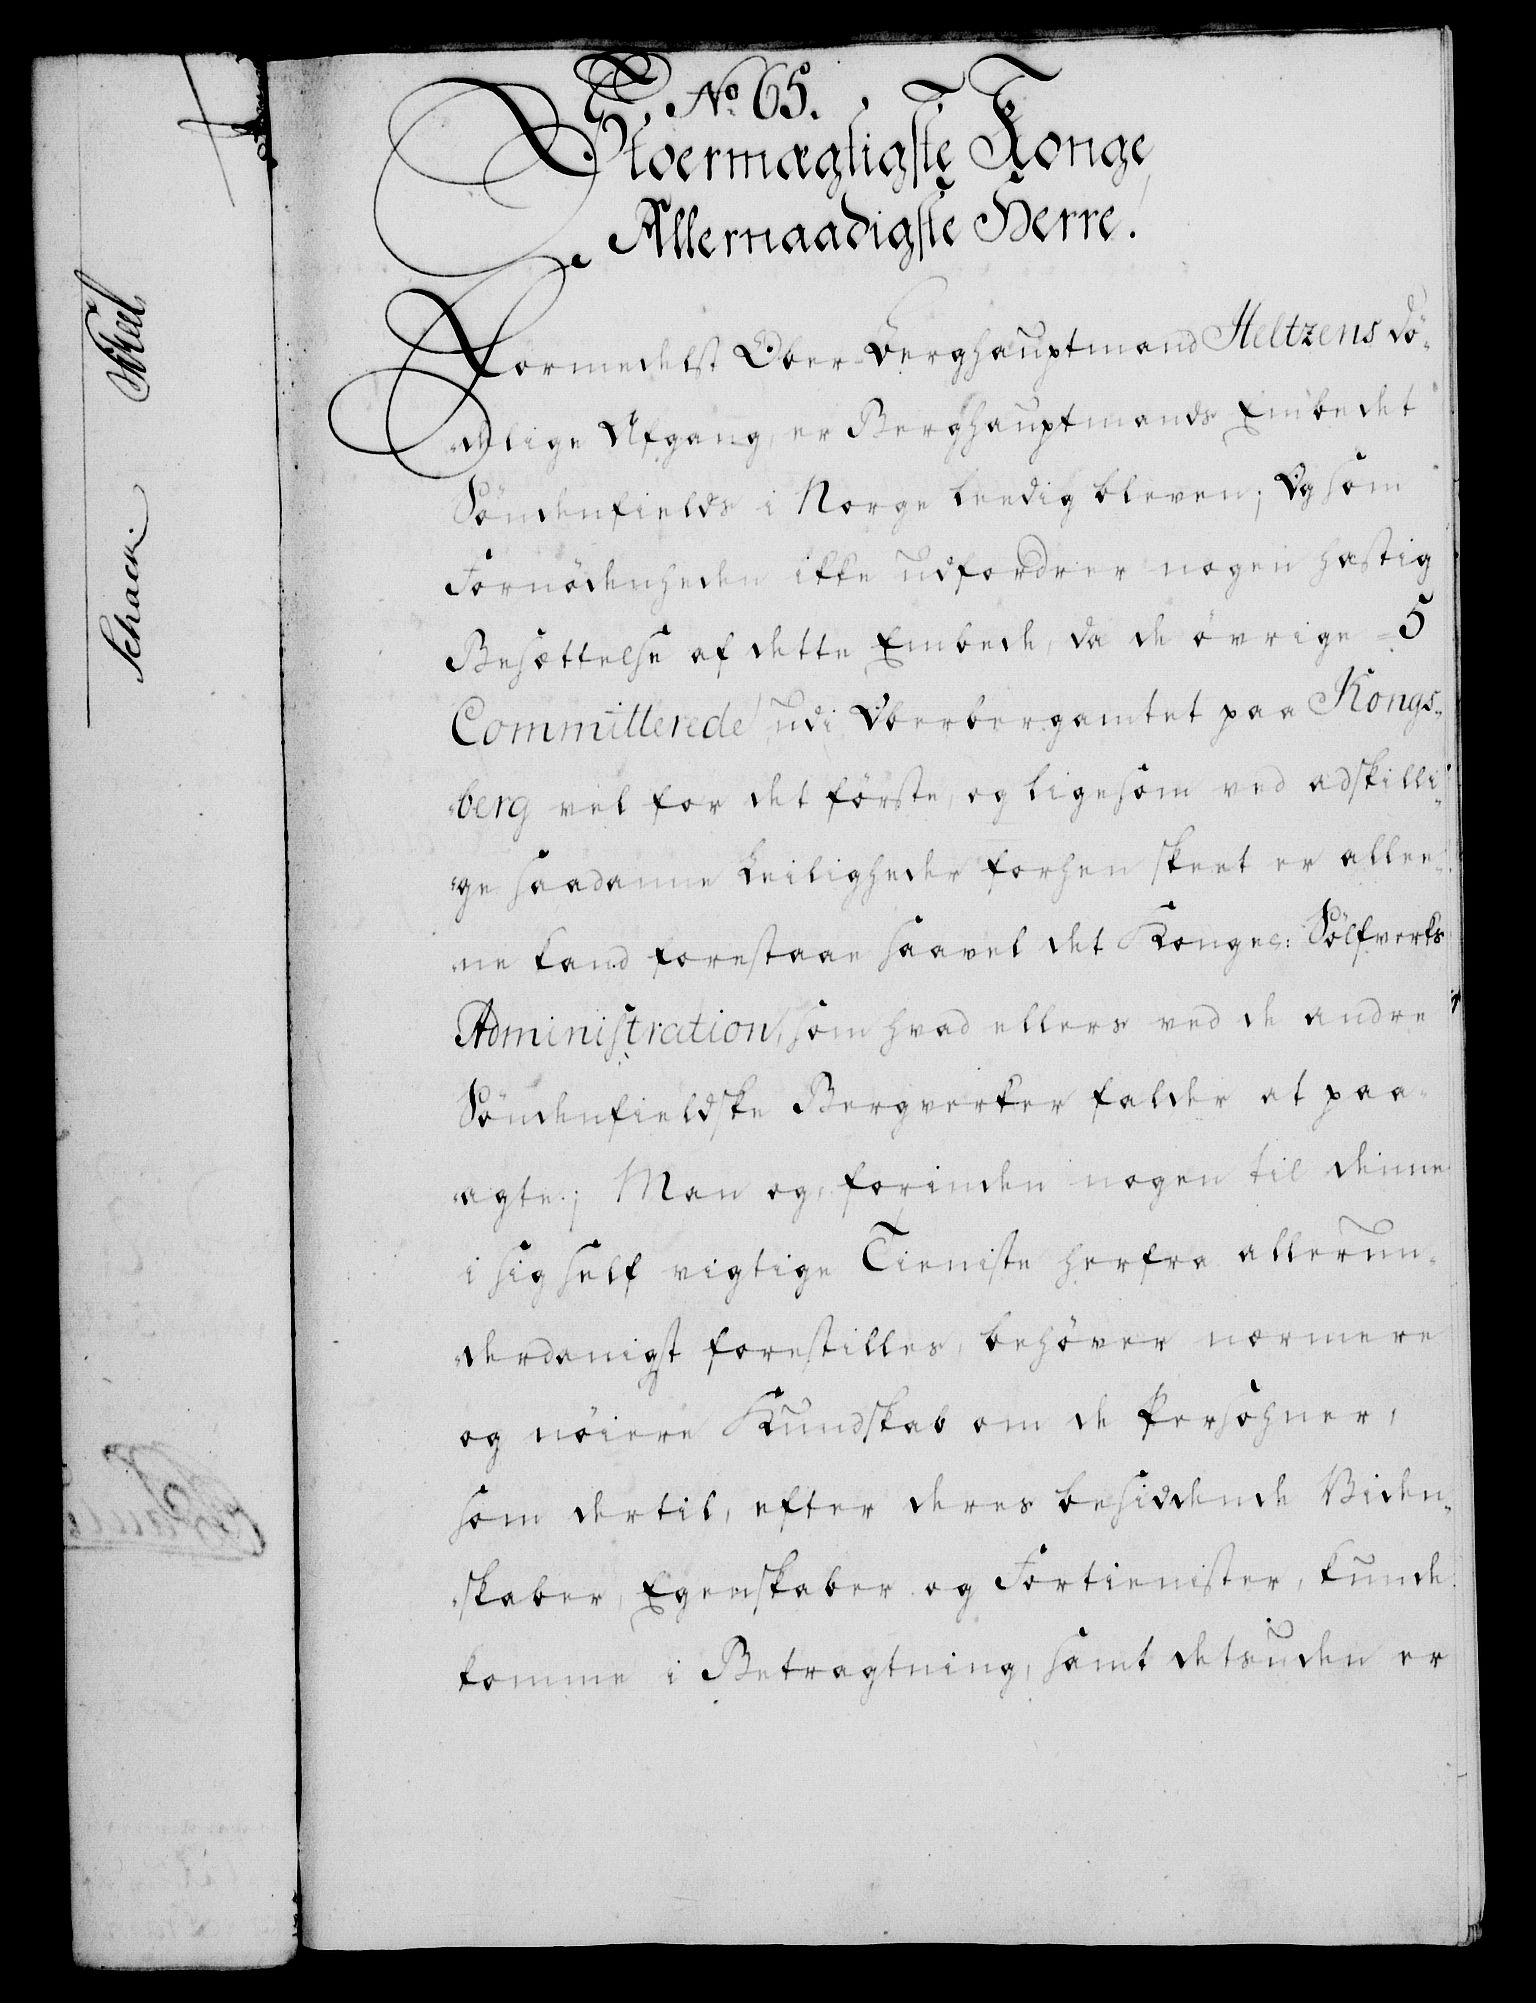 No. 65.
Stoermægtigste Konge
Allernaadigste Herre.
Formedelst Ober-Berghauptmand Heltzens dö-
delige Afgang, er Berghauptmands Embedet
Söndenfields i Norge leedig bleven; Og som
Fornödenheden ikke udfordrer nogen hastig
Besættelse af dette Embede, da de övrige 5
Committerede udi Oberbergamtet paa Kongs-
berg vel for det förste, og ligesom ved adskilli-
ge saadanne Leiligheder forhen skeet er allee-
ne kand forestaae saavel det Konges: Sölfverks
Administration, som hvad ellers ved de andre
Söndenfieldske Bergverker falder at paa-
agte; Man og, forinden nogen til denne
i sig self vigtige Tieniste herfra allerun-
derdanigst forestilles, behöver nærmere
og nöiere Kundskab om de Persohner,
som dertil, efter deres besiddende Viden-
skaber, Egenskaber og Fortienister, kunde
komme i Betragtning, samt detsuden er
Schack.